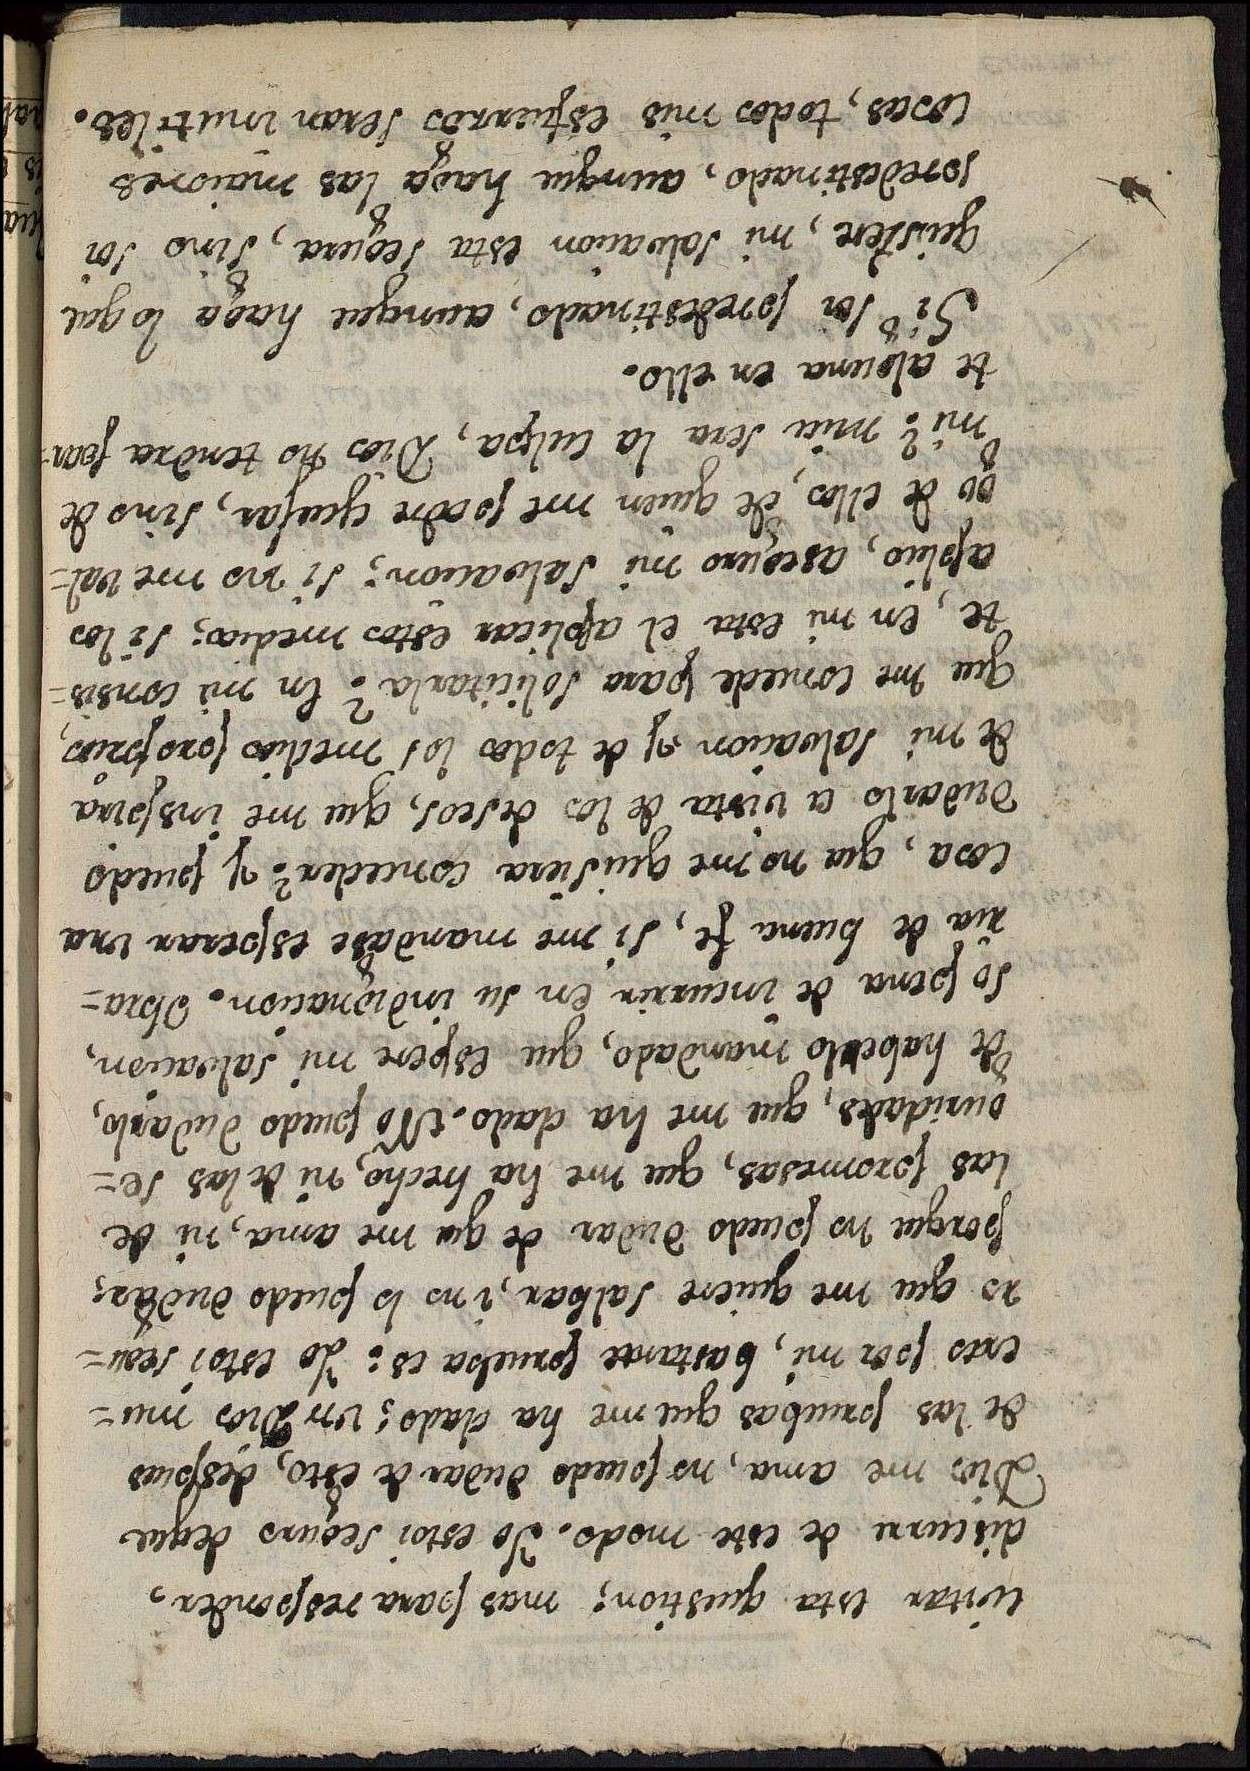 citar esta question; mas para responder,
discurre de este modo. Yo estoi seguro deque
Dios me ama, no puedo dudar de esto, despues
de las pruebas que me ha dado; un Dios mu=
erto por mi, bastante prueba es: Yo estoi segu=
ro que me quiere salbar, i no lo puedo dudar;
porque no puedo dudar de que me ama, ni de
las promesas, que me ha hecho, ni de las se=
guridades, que me ha dado. No puedo dudarlo,
de haberlo mandado, que espere mi salvacion,
so pena de incurrir en su indignacion. Obra=
ria de buena fe, si me mandase esperar una
cosa, que no me quisiera conceder? y puedo
dudarlo a vista de los deseos, que me inspira
de mi salvacion y de todos los medios proprios,
que me concede para solicitarla? En mi consis=
te, en mi esta el aplicar estos medios; si los
aplico, aseguro mi salvacion; si no me val=
go de ellos, de quien me podre quejar, sino de
mi? mia sera la culpa, Dios no tendra par=
te alguna en ello.
Si soi predestinado, aunque haga lo que
quisiere, mi salvacion esta segura, sino soi
predestinado, aunque haga las maiores
cosas, todos mis esfuerzos seran inutiles.